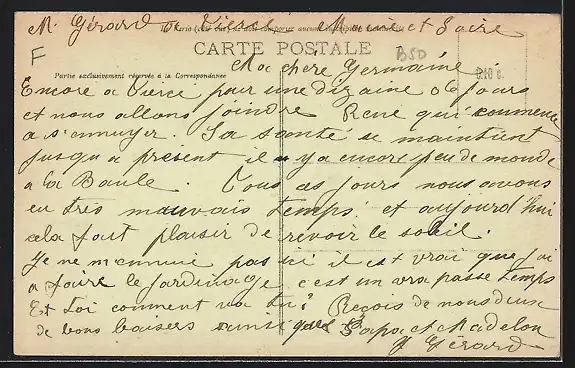 M Gérard à Tiercé Maine et Loire
CARTE POSTALE
F
BSD
6.10 c.
Partie exclusivement réservée à la Correspondance
Ma chère Germaine
Encore à Tiercé pour une dizaine de jours
et nous allons joindre René qui commence
a s'ennuyer. Sa santé se maintient
jusqu'a présent il n y a encore peu de monde
a la Baule. Tous ces jours nous avons
eu très mauvais temps et aujourd'hui
cela fait plaisir de revoir le soleil.
Je ne m'ennuie pas ici il est vrai que j'ai
a faire le jardinage c'est un vrai passe temps
Et toi comment va tu? Reçois de nous deux
de bons baisers ainsi que Papa et Madelon
Gérard